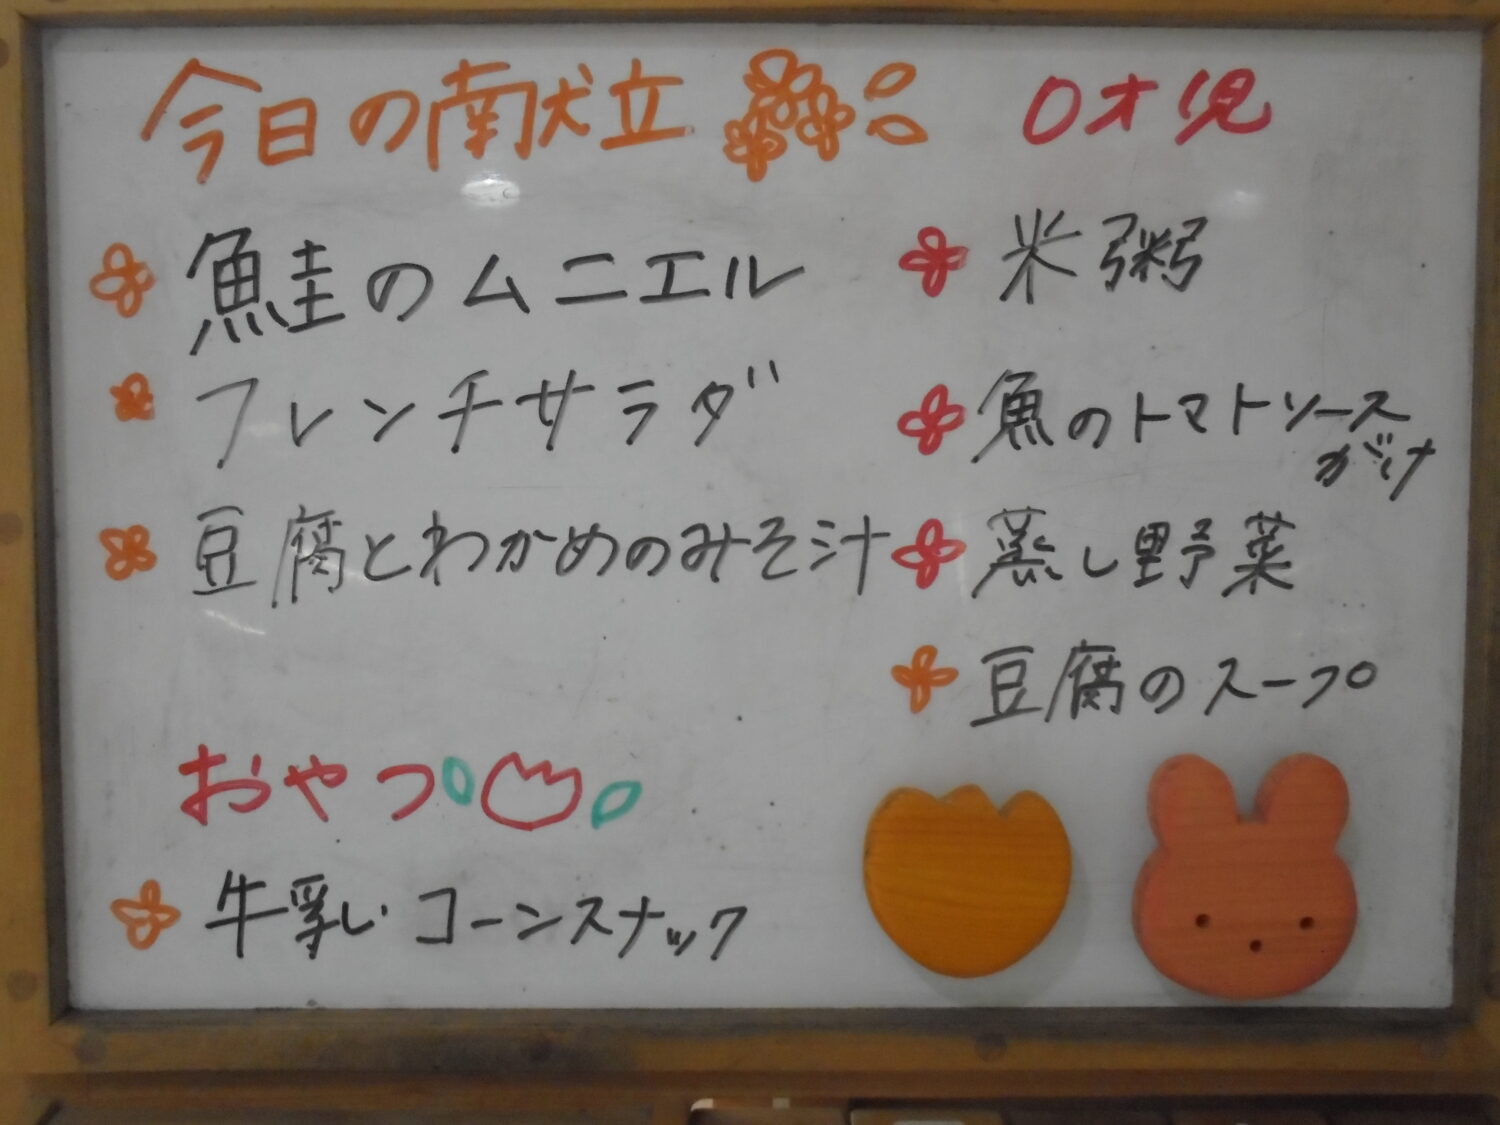 今日の献立
鮭のムニエル
フレンチサラダ
豆腐とわかめのみそ汁
おやつ
牛乳 コーンスナック
0才児
米粥
魚のトマトソース
がけ
蒸し野菜
豆腐のスープ